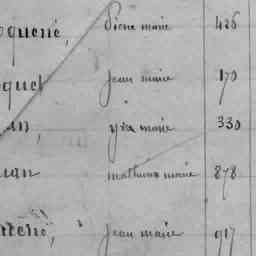 oquené, Pierre marie 426
quet Jean marie 170
an, yves marie 330
uan mathurin marie 878
Jean marie 917